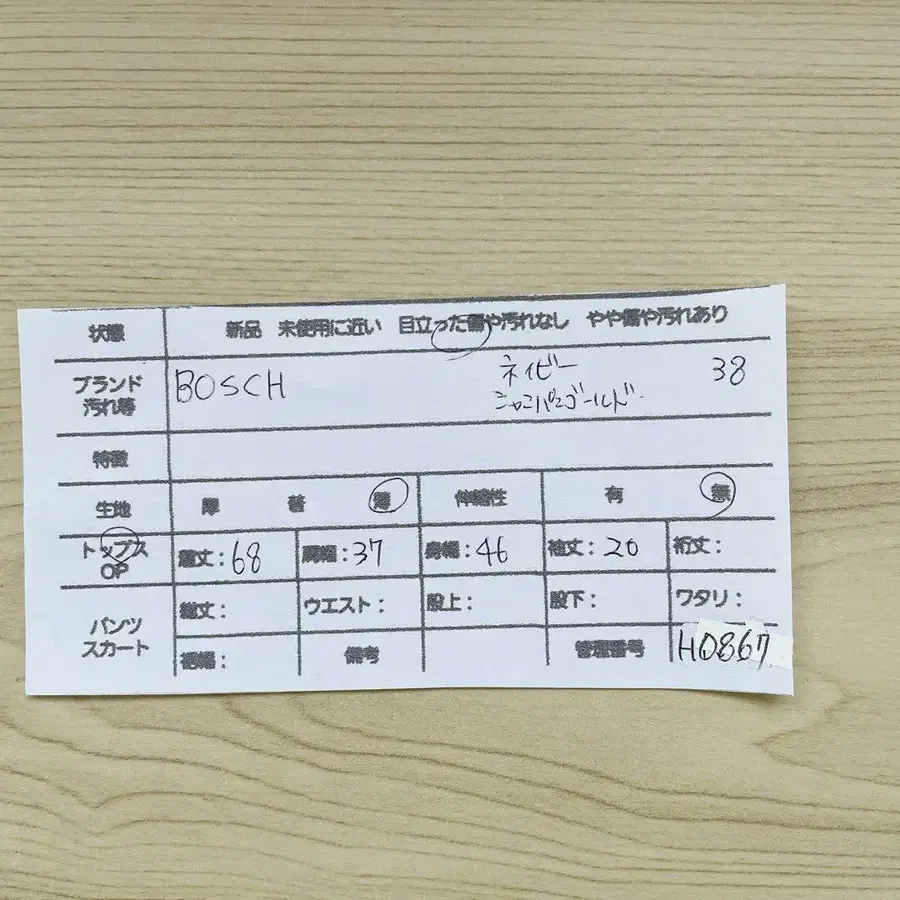 状態 新品 未使用に近い 目立った傷や汚れなし やや傷や汚れあり
ブランド 汚れ等 BOSCH ネイビー シャンパンゴールド 38
特徴
生地 厚 普 薄 伸縮性 有 無
トップス OP 着丈：68 肩幅：37 身幅：46 袖丈：20 裄丈：
パンツ スカート 総丈： ウエスト： 股上： 股下： ワタリ：
裾幅： 備考 管理番号 H0867